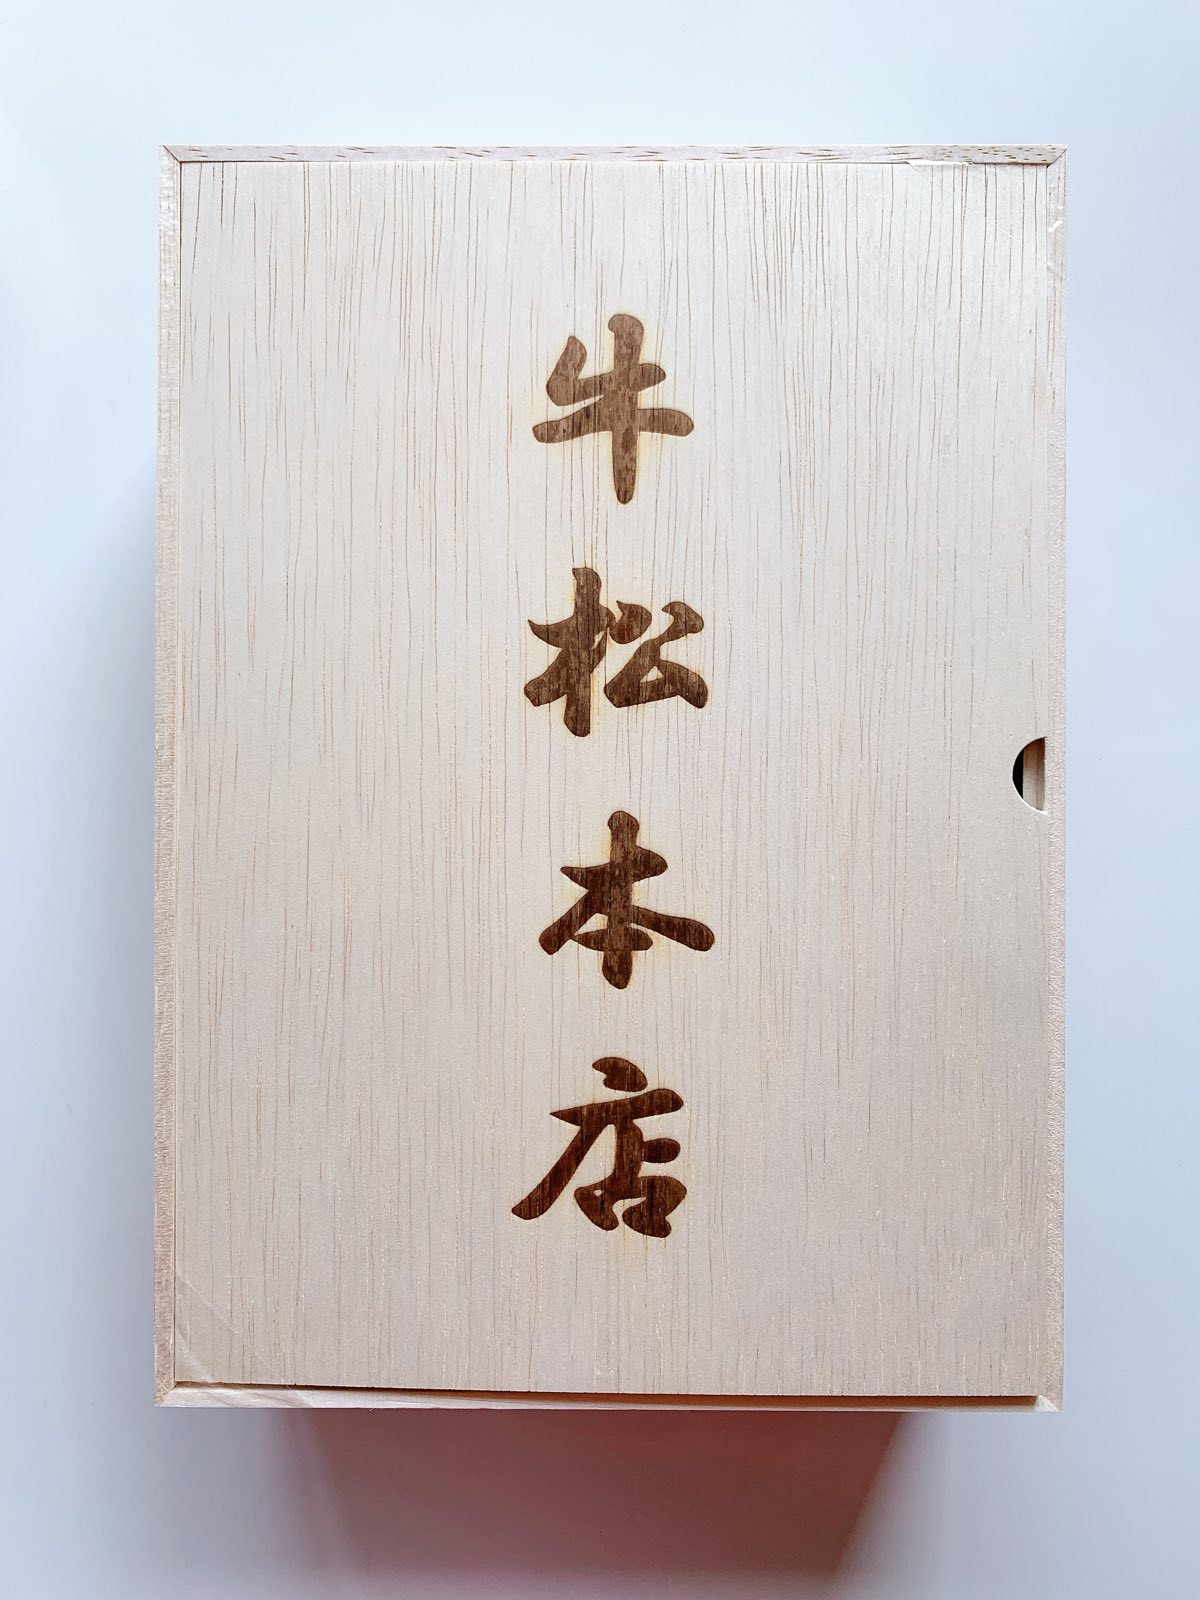 牛松本店